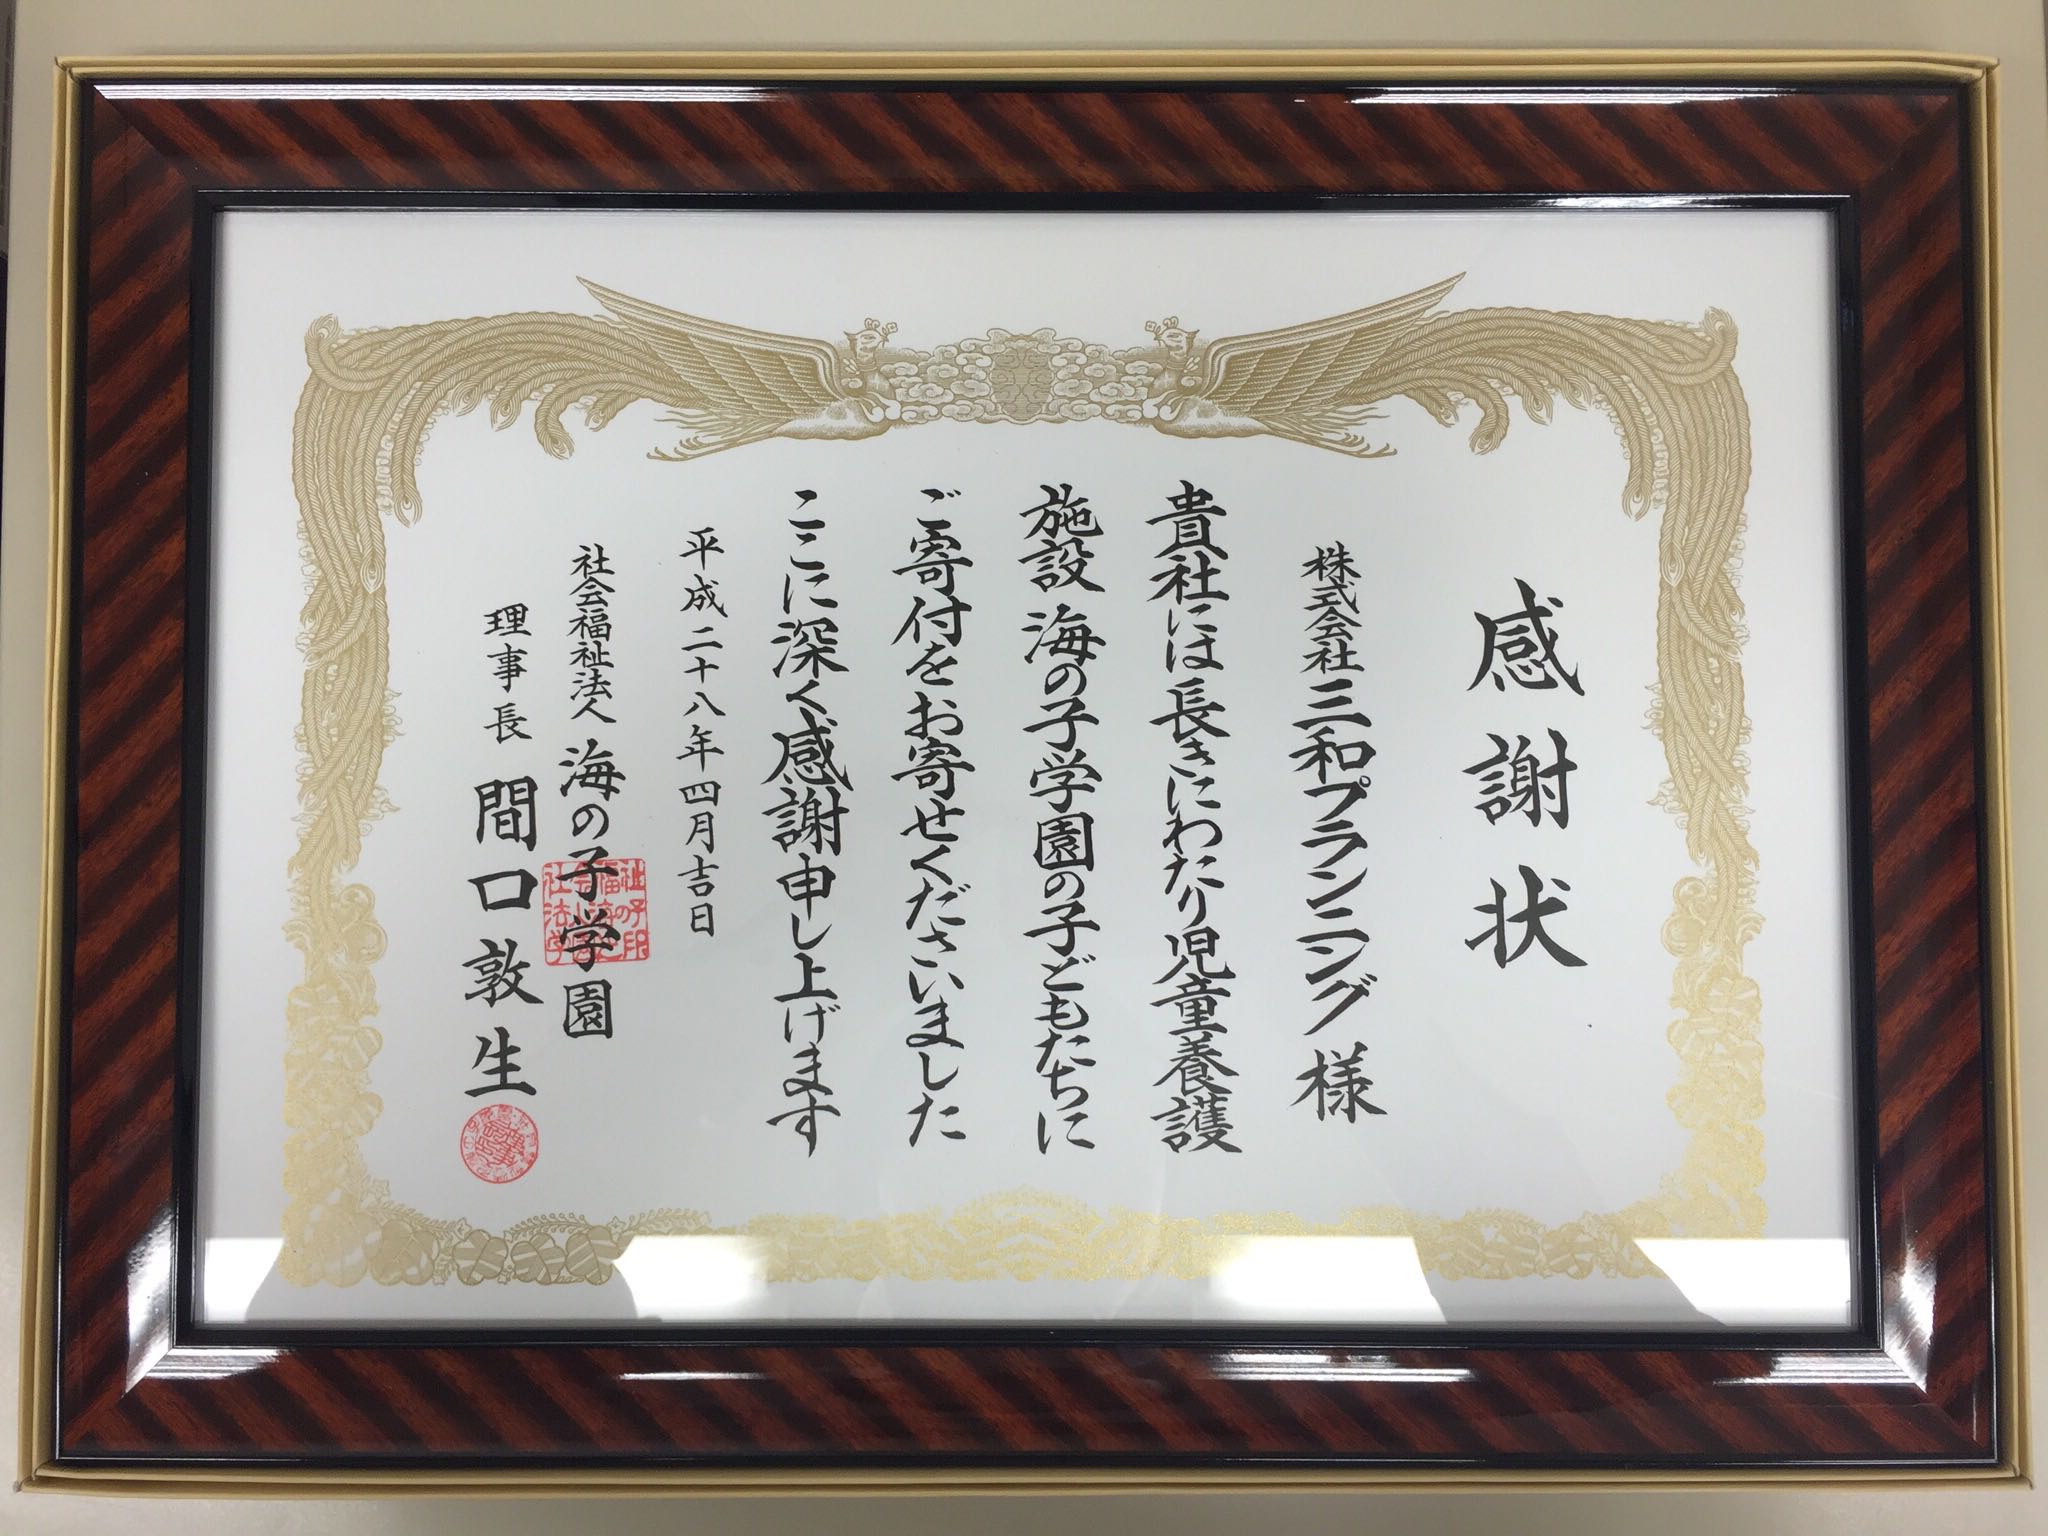 感謝状
株式会社三和プランニング様
貴社には長きにわたり児童養護
施設 海の子学園の子どもたちに
ご寄付をお寄せくださいました
ここに深く感謝申し上げます
平成二十八年四月吉日
社会福祉法人 海の子学園
理事長 間口敦生